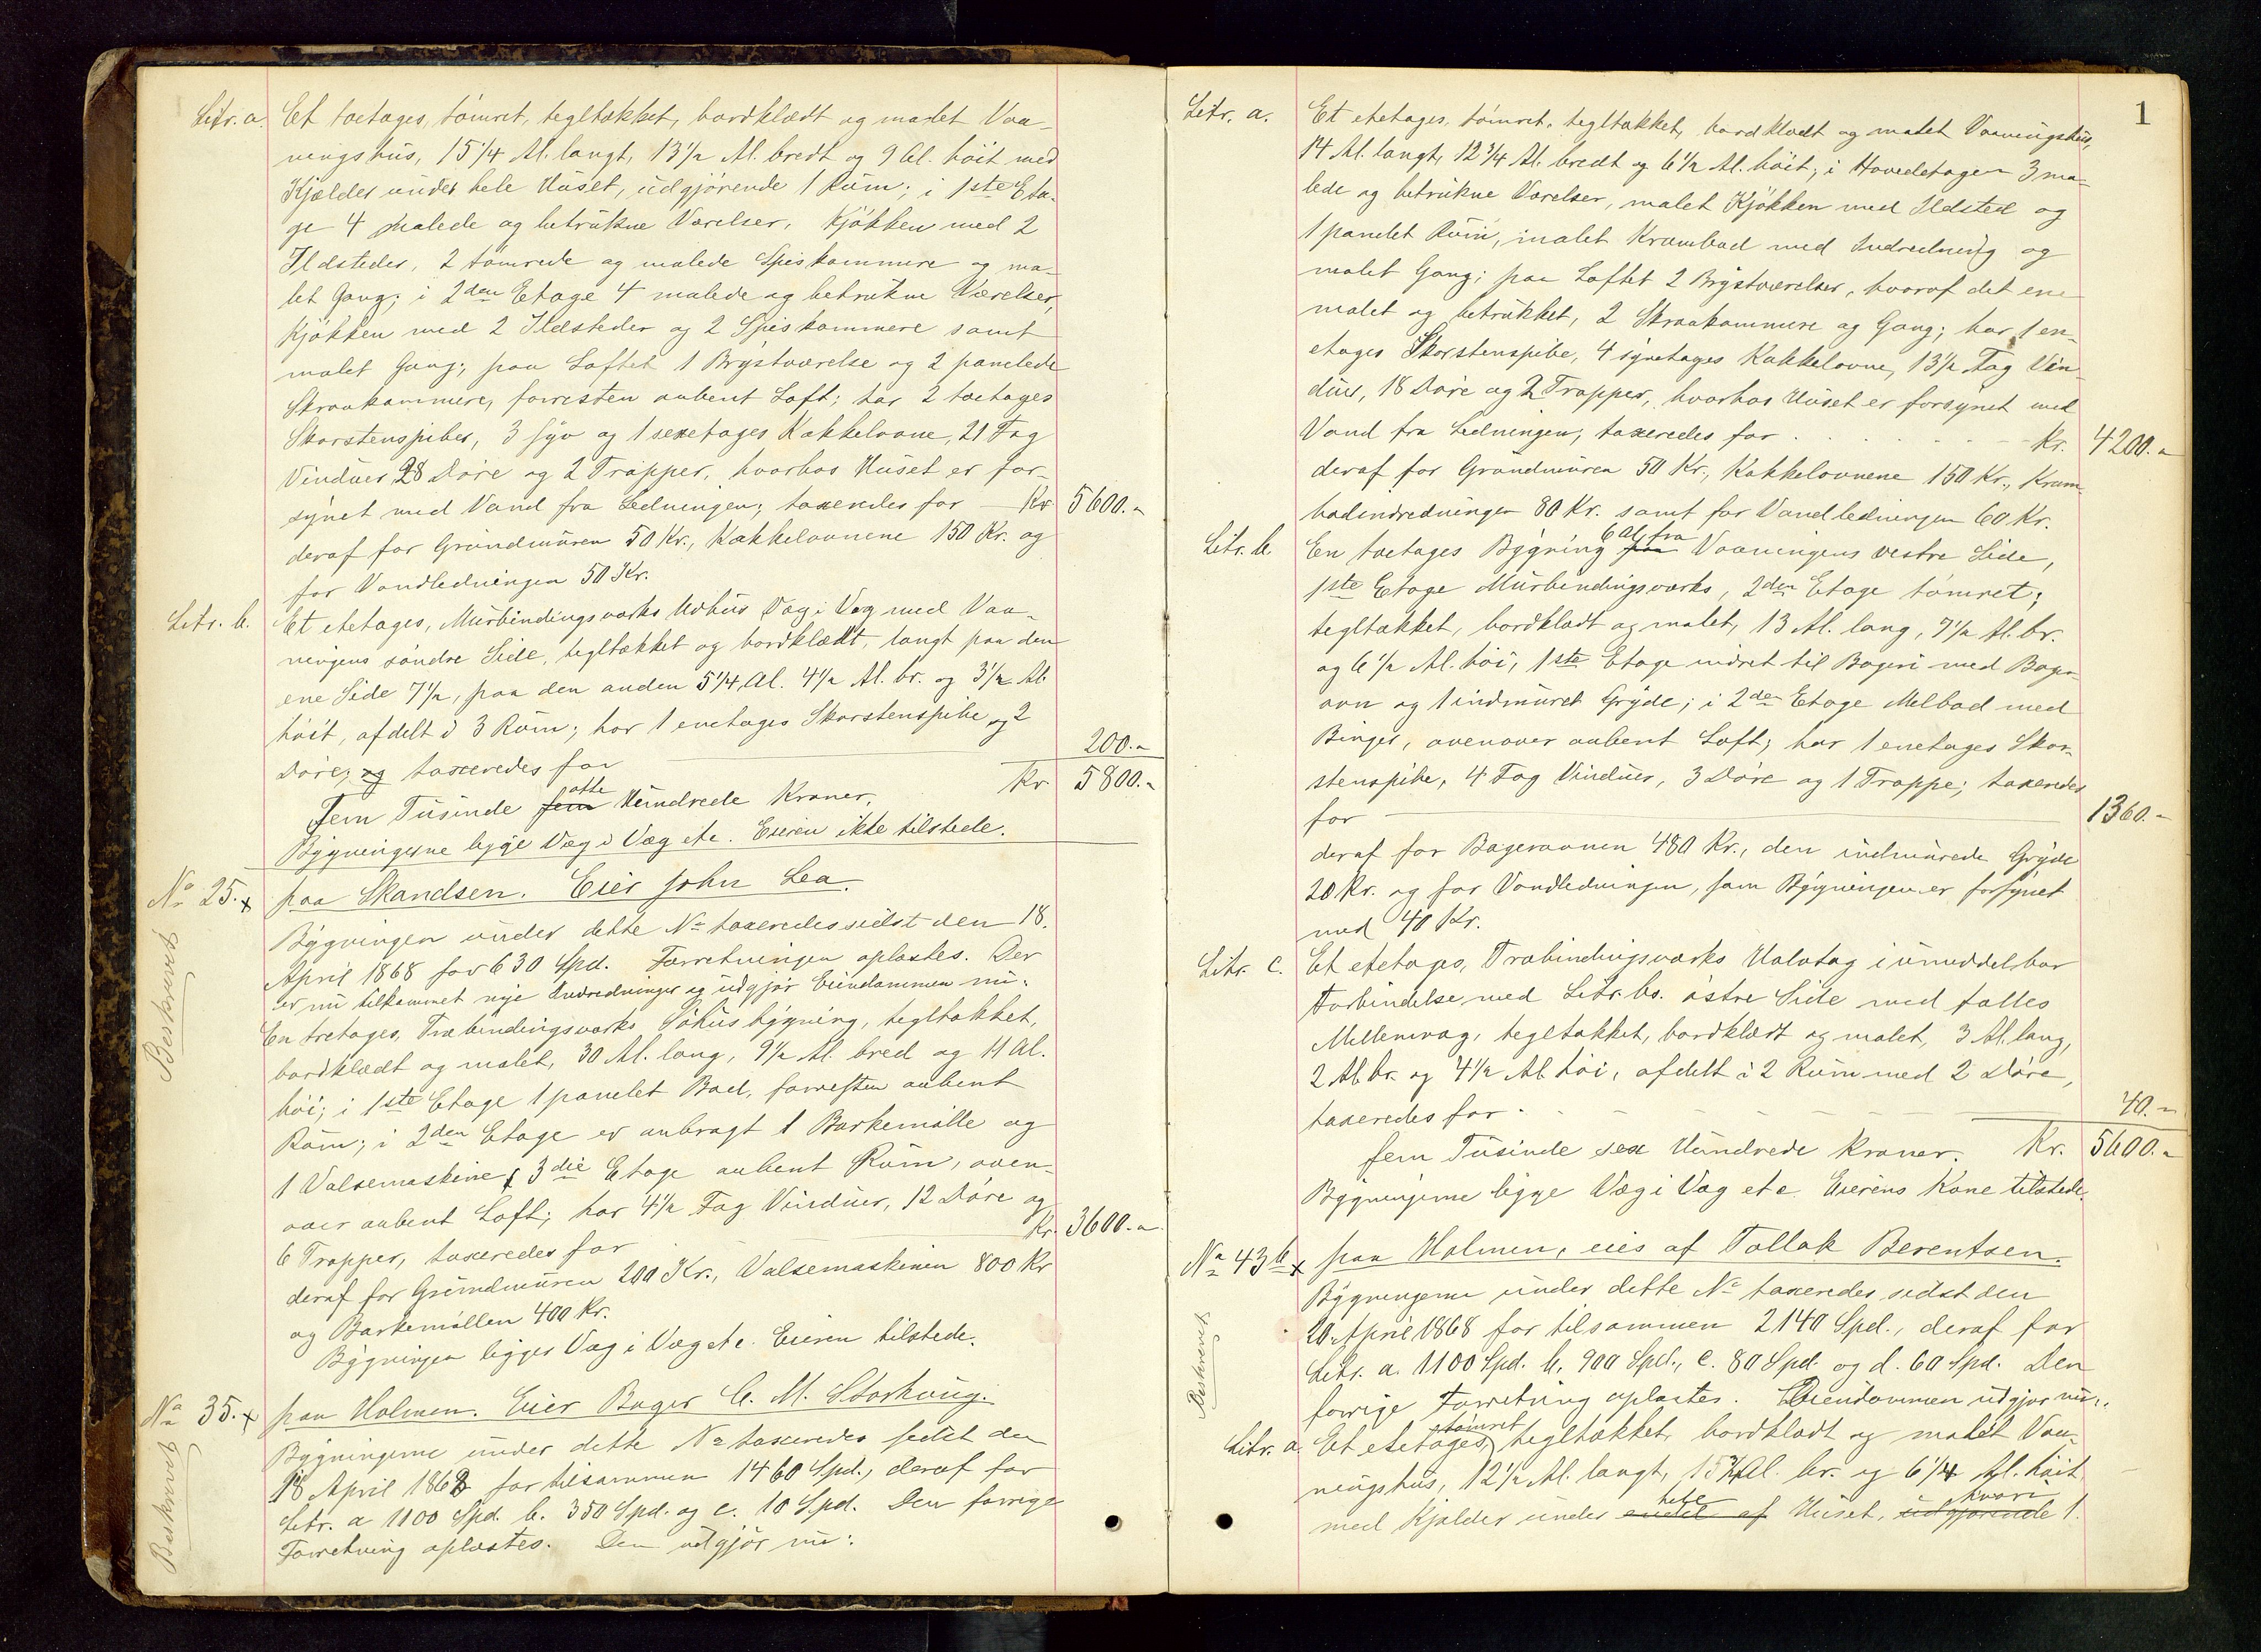 Litr. a. Et toetages, tømret, tegltækket, bordklædt og malet Vaa-
ningshus, 15 1/4 Al. langt, 13 1/2 Al. bredt og 9 Al. høit med
Kjælder under hele Huset, udgjørende 1 Rum; i 1ste Eta-
ge 4 malede og betrukne Værelser, Kjøkken med 2
Ildsteder, 2 tømrede og malede Spiskammere og ma-
let Gang; i 2den Etage 4 malede og betrukne Værelser,
Kjøkken med 2 Ildsteder og 2 Spiskammere samt
malet Gang; paa Loftet 1 Brystværelse og 2 panelede
Skraakammere, forresten aabent Loft; har 2 toetages
Skorstenspiber, 3 syv og 1 sexetages Kakkelovne, 21 Fag
Vinduer, 28 Døre og 2 Trapper, hvorhos Huset er for-
synet med Vand fra Ledningen; taxeredes for — Kr. 5600.-
deraf for Grundmuren 50 Kr., Kakkelovnene 150 Kr. og
for Vandledningen 50 Kr.
Litr. b. Et etetages, Murbindingsværks Udhus Væg i Væg med Vaa-
ningens søndre Side, tegltækket og bordklædt, langt paa den
ene Side 7 1/2, paa den anden 5 1/4 Al. 4 1/2 Al. br. og 3 1/2 Al.
høit, afdelt i 3 Rum; har 1 enetages Skorstenspibe og 2
Døre; og taxeredes for 200.-
Fem Tusinde fem otte Hundrede Kroner. Kr. 5800.-
Bygningerne ligge Væg i Væg etc. Eieren ikke tilstede.
No 25. x paa Skandsen. Eier John Lea.
Beskrevet
Bygningen under dette No taxeredes sidst den 18.
April 1868 for 630 Spd. Forretningen oplæstes. Der
er nu tilkommet nye Indredninger og udgjør Eiendommen nu:
En tretages, Træbindingsværks Søhusbygning, tegltækket,
bordklædt og malet, 30 Al. lang, 9 1/2 Al. bred og 11 Al.
høi; i 1ste Etage 1 panelet Bod, forresten aabent
Rum; i 2den Etage er anbragt 1 Barkemølle og
1 Valsemaskine, 3die Etage aabent Rum, oven-
over aabent Loft; har 4 1/2 Fag Vinduer, 12 Døre og
6 Trapper, taxeredes for Kr. 3600.-
deraf for Grundmuren 200 Kr., Valsemaskinen 800 Kr
og Barkemøllen 400 Kr.
Bygningen ligger Væg i Væg etc. Eieren tilstede.
No 35. x paa Holmen. Eier Bager C. M. Storhoug.
Beskrevet
Bygningerne under dette No taxeredes sidst den
18 April 1868 for tilsammen 1460 Spd., deraf for
Litr. a 1100 Spd. b. 350 Spd. og c. 10 Spd. Den forrige
Forretning oplæstes. Den udgjør nu:
1
Litr. a. Et etetages, tømret, tegltækket, bordklædt og malet Vaaningshus,
14 Al. langt, 12 3/4 Al. bredt og 6 1/2 Al. høit; i Hovedetagen 3 ma-
lede og betrukne Værelser, malet Kjøkken med Ildsted og
1 panelet Rum, malet Krambod med Indredning og
malet Gang; paa Loftet 2 Brystværelser, hvoraf det ene
malet og betrukket, 2 Skraakammere og Gang; har 1 en-
etages Skorstenspibe, 4 syvetages Kakkelovne, 13 1/2 Fag Vin-
duer, 18 Døre og 2 Trapper, hvorhos Huset er forsynet med
Vand fra Ledningen; taxeredes for Kr. 4200.-
deraf for Grundmuren 50 Kr., Kakkelovnene 150 Kr., Kram-
bodindredningen 80 Kr. samt for Vandledningen 60 Kr.
Litr. b. En toetages Bygning paa 6 Al. fra Vaaningens vestre Side,
1ste Etage Murbindingsværks, 2den Etage tømret;
tegltækket, bordklædt og malet, 13 Al. lang, 7 1/2 Al. br.
og 6 1/2 Al. høi, 1ste Etage indret til Bageri med Bager-
ovn og 1 indmuret Gryde; i 2den Etage Melbod med
Binger, ovenover aabent Loft; har 1 enetages Skor-
stenspibe, 4 Fag Vinduer, 3 Døre og 1 Trappe; taxeredes
for 1360.-
deraf for Bagerovnen 480 Kr., den indmurede Gryde
20 Kr. og for Vandledningen, som Bygningen er forsynet
med 40 Kr.
Litr. c. Et etetages, Træbindingsværks Halvtag i umiddelbar
Forbindelse med Litr. bs. østre Side med fælles
Mellemvæg, tegltækket, bordklædt og malet, 3 Al. lang,
2 Al. br. og 4 1/2 Al. høi, afdelt i 2 Rum med 2 Døre,
taxeredes for 40.-
fem Tusinde sex Hundrede Kroner. Kr. 5600.-
Bygningerne ligge Væg i Væg etc. Eierens Kone tilstede.
No 43 b x paa Holmen, eies af Tollak Berentsen.
Beskrevet
Bygningerne under dette No taxeredes sidst den
20. April 1868 for tilsammen 2140 Spd., deraf for
Litr. a. 1100 Spd. b. 900 Spd., c. 80 Spd. og d. 60 Spd. Den
forrige Forretning oplæstes. Eiendommen udgjør nu:
Litr. a. Et etetages, tømret tegltækket, bordklædt og malet Vaa-
ningshus, 12 1/2 Al. langt, 15 3/4 Al. br. og 6 1/4 Al. høit
med Kjælder under endel af hele Huset, udgjørende hvori 1